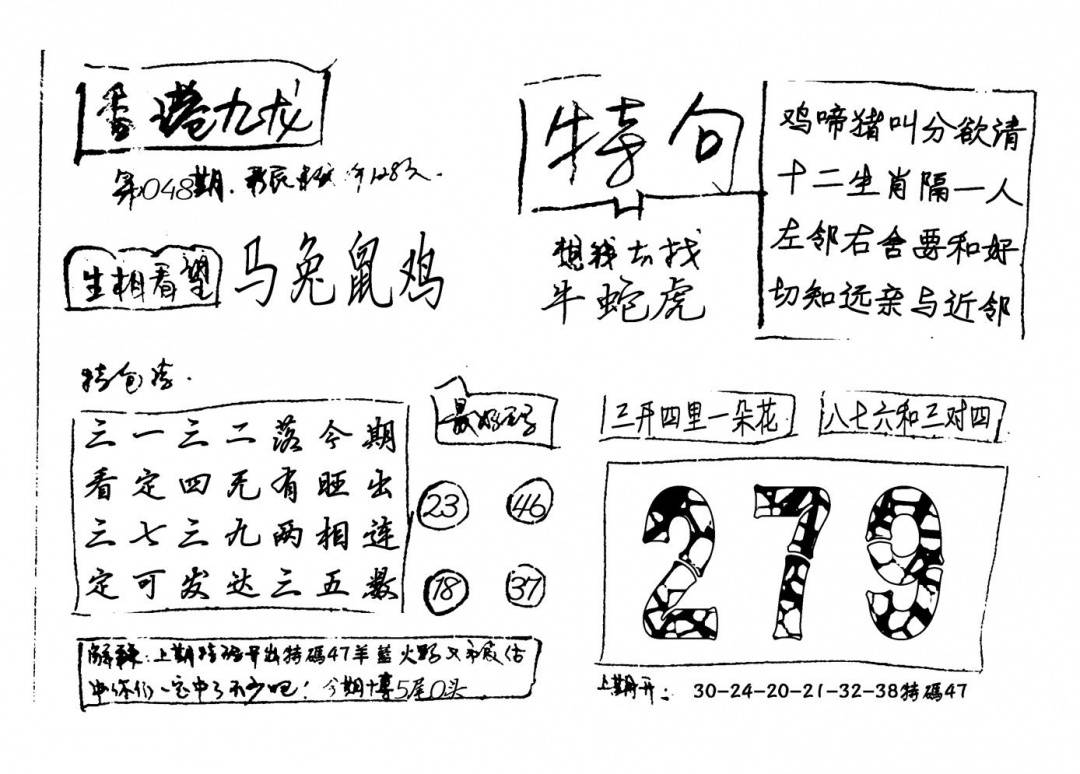 香港九龙
第048期.
生相看望
马兔鼠鸡
特句
想我去找
牛蛇虎
鸡啼猪叫分欲请
十二生肖隔一人
左邻右舍要和好
切知远亲与近邻
特包
三一三二落今期
看定四无有旺出
三七三九两相连
定可发达三五数
最好
23 46
18 37
三开四里一朵花
八七六和三对四
279
解释:上期特码开出特碼47羊蓝火野又
中你们一定中了不少吧! 今期博5尾0头
上期开: 30-24-20-21-32-38特碼47